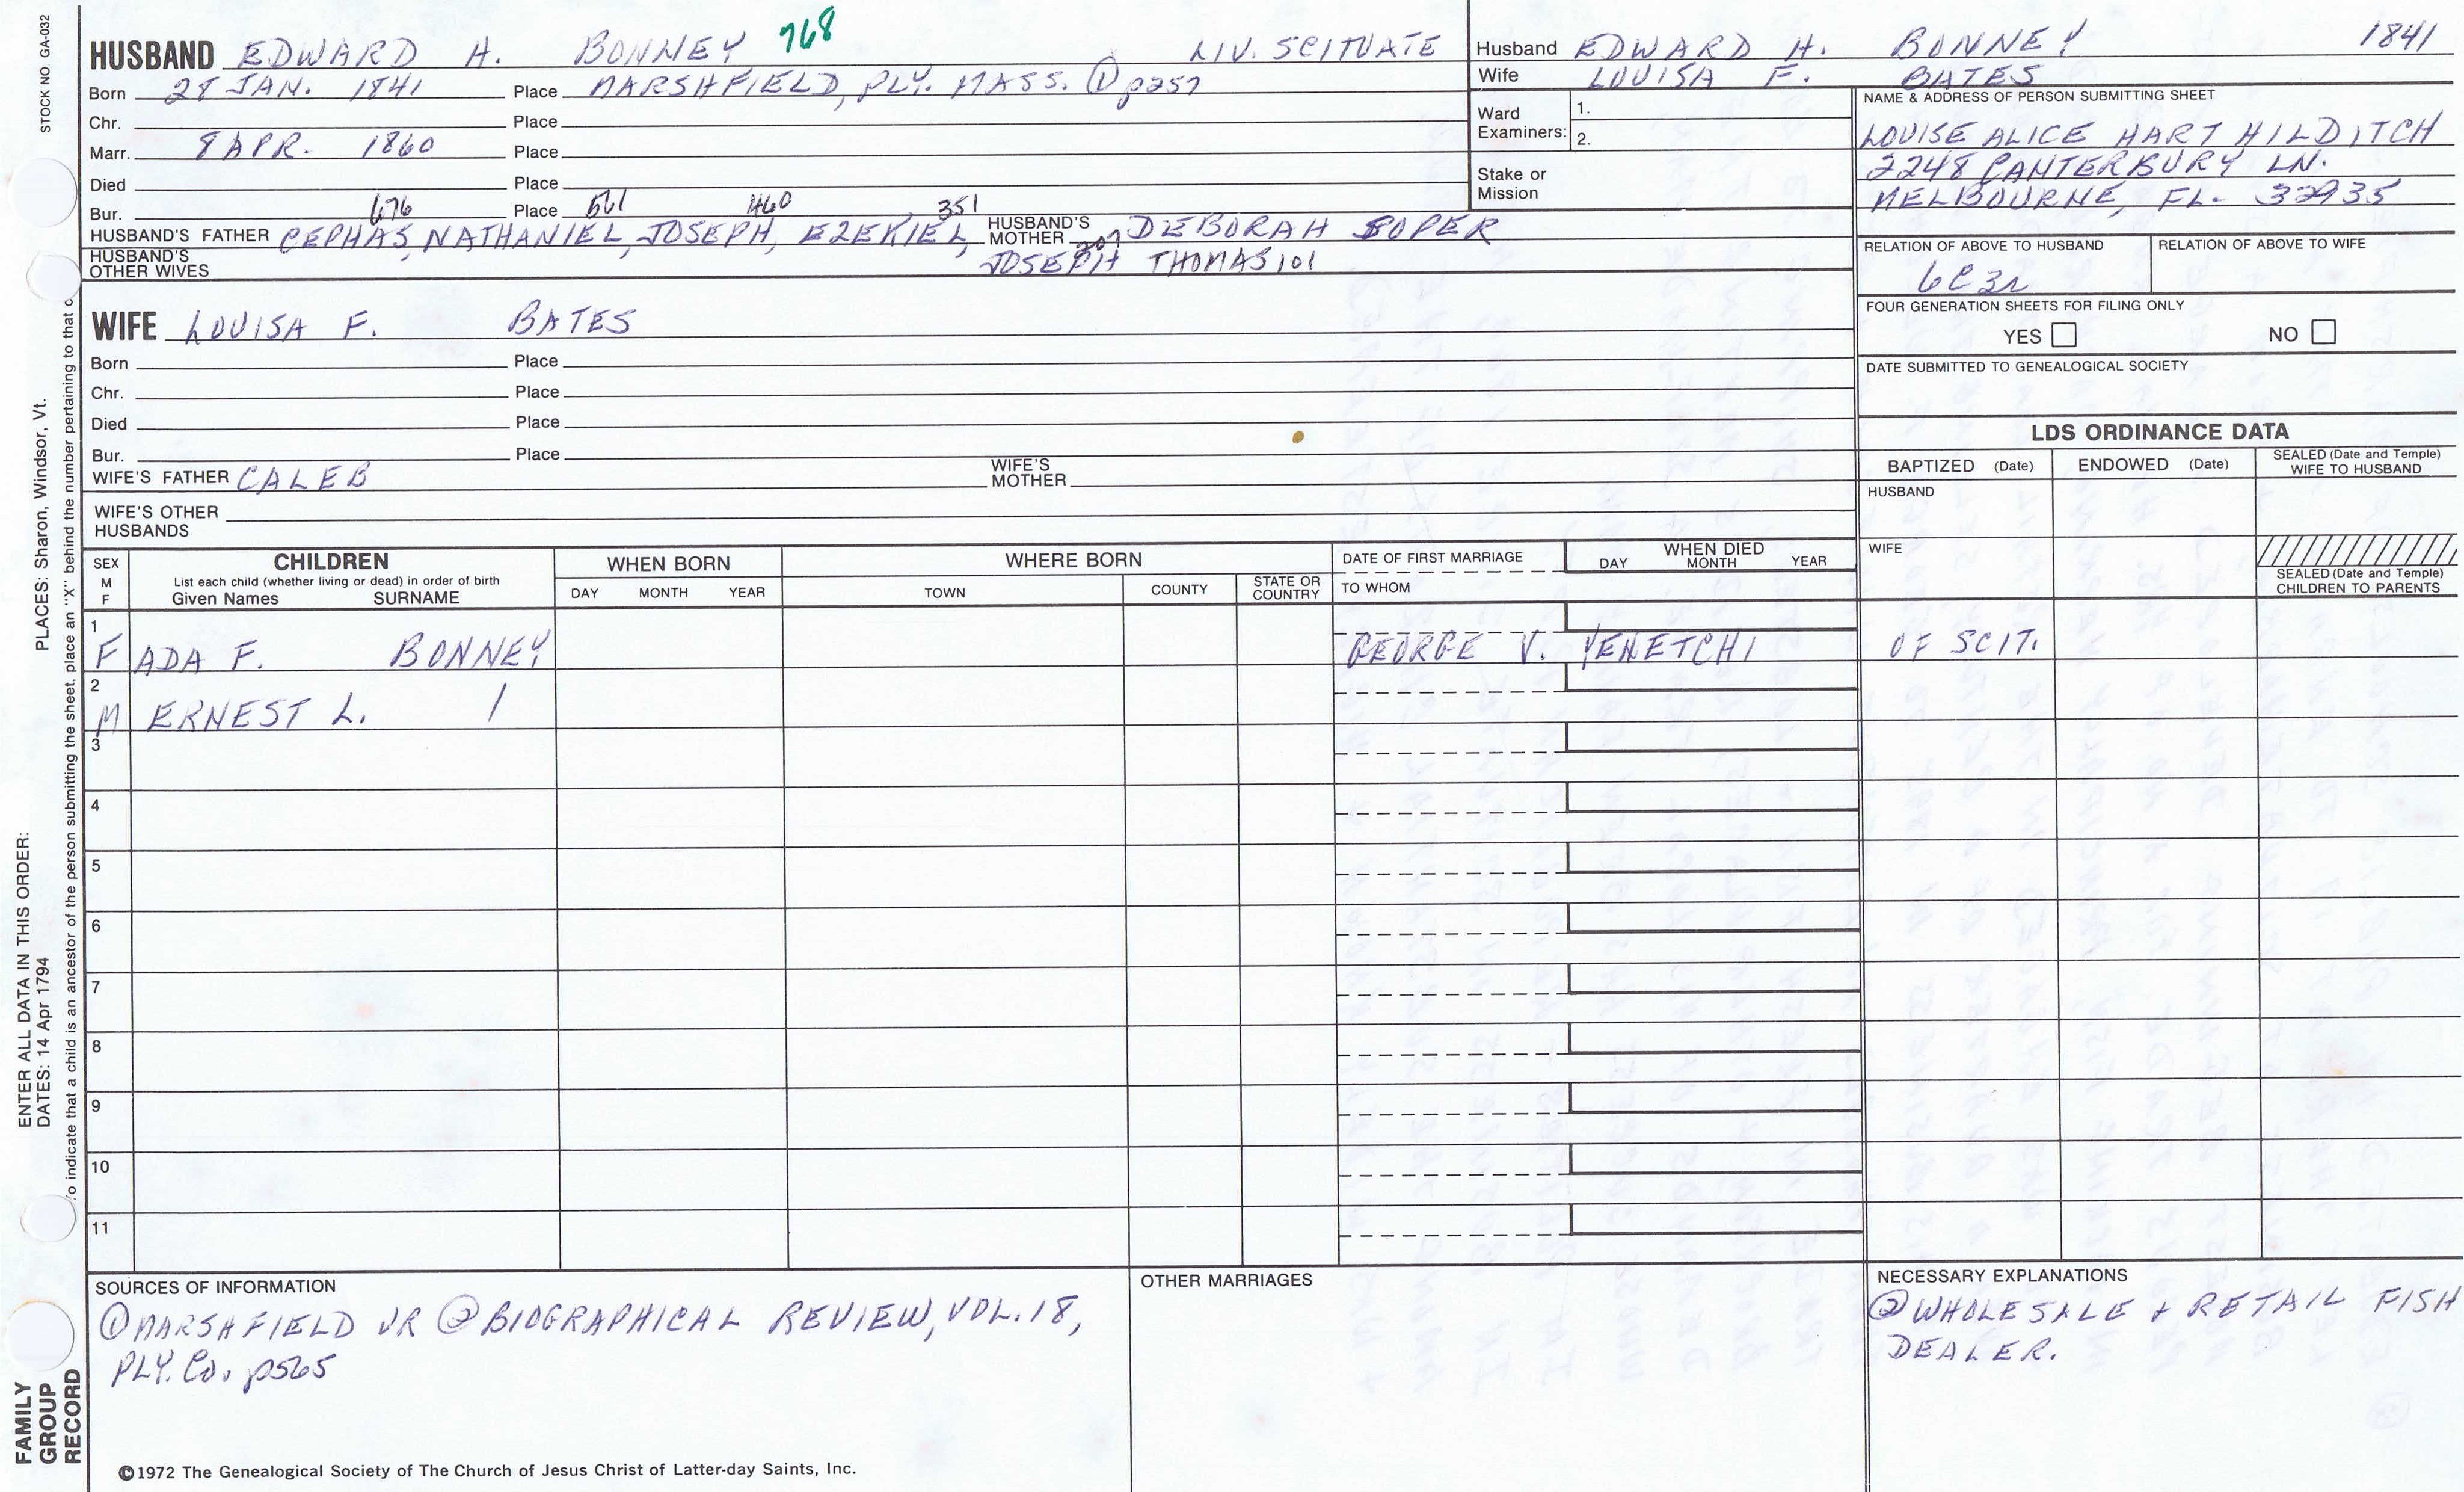 STOCK NO GA-032
HUSBAND EDWARD H. BONNEY 768 LIV. SCITUATE
Born 28 JAN. 1841 Place MARSHFIELD, PLY. MASS. ① p257
Chr. Place
Marr. 8 APR. 1860 Place
Died Place
Bur. Place
676 561 460 351
HUSBAND'S FATHER CEPHAS, NATHANIEL, JOSEPH, EZEKIEL, HUSBAND'S MOTHER DEBORAH SOPER
HUSBAND'S OTHER WIVES JOSEPH 207 THOMAS 101
Husband EDWARD H. BONNEY 1841
Wife LOUISA F. BATES
Ward Examiners: 1.
2.
Stake or Mission
NAME & ADDRESS OF PERSON SUBMITTING SHEET
LOUISE ALICE HART HILDITCH
2248 CANTERBURY LN.
MELBOURNE, FL. 32935
RELATION OF ABOVE TO HUSBAND RELATION OF ABOVE TO WIFE
6C3r
FOUR GENERATION SHEETS FOR FILING ONLY
YES NO
DATE SUBMITTED TO GENEALOGICAL SOCIETY
WIFE LOUISA F. BATES
Born Place
Chr. Place
Died Place
Bur. Place
WIFE'S FATHER CALEB WIFE'S MOTHER
WIFE'S OTHER HUSBANDS
LDS ORDINANCE DATA
BAPTIZED (Date) ENDOWED (Date) SEALED (Date and Temple) WIFE TO HUSBAND
HUSBAND
WIFE
SEALED (Date and Temple) CHILDREN TO PARENTS
SEX M F CHILDREN WHEN BORN WHERE BORN DATE OF FIRST MARRIAGE WHEN DIED
List each child (whether living or dead) in order of birth
Given Names SURNAME DAY MONTH YEAR TOWN COUNTY STATE OR COUNTRY TO WHOM DAY MONTH YEAR
1
F ADA F. BONNEY GEORGE V. YENETCHI OF SCIT.
2
M ERNEST L. 1
3
4
5
6
7
8
9
10
11
SOURCES OF INFORMATION
① MARSHFIELD VR ② BIOGRAPHICAL REVIEW, VOL. 18,
PLY. Co. p565
OTHER MARRIAGES
NECESSARY EXPLANATIONS
② WHOLESALE & RETAIL FISH
DEALER.
©1972 The Genealogical Society of The Church of Jesus Christ of Latter-day Saints, Inc.
PLACES: Sharon, Windsor, Vt.
ENTER ALL DATA IN THIS ORDER:
DATES: 14 Apr 1794
o indicate that a child is an ancestor of the person submitting the sheet, place an "X" behind the number pertaining to that c
FAMILY
GROUP
RECORD